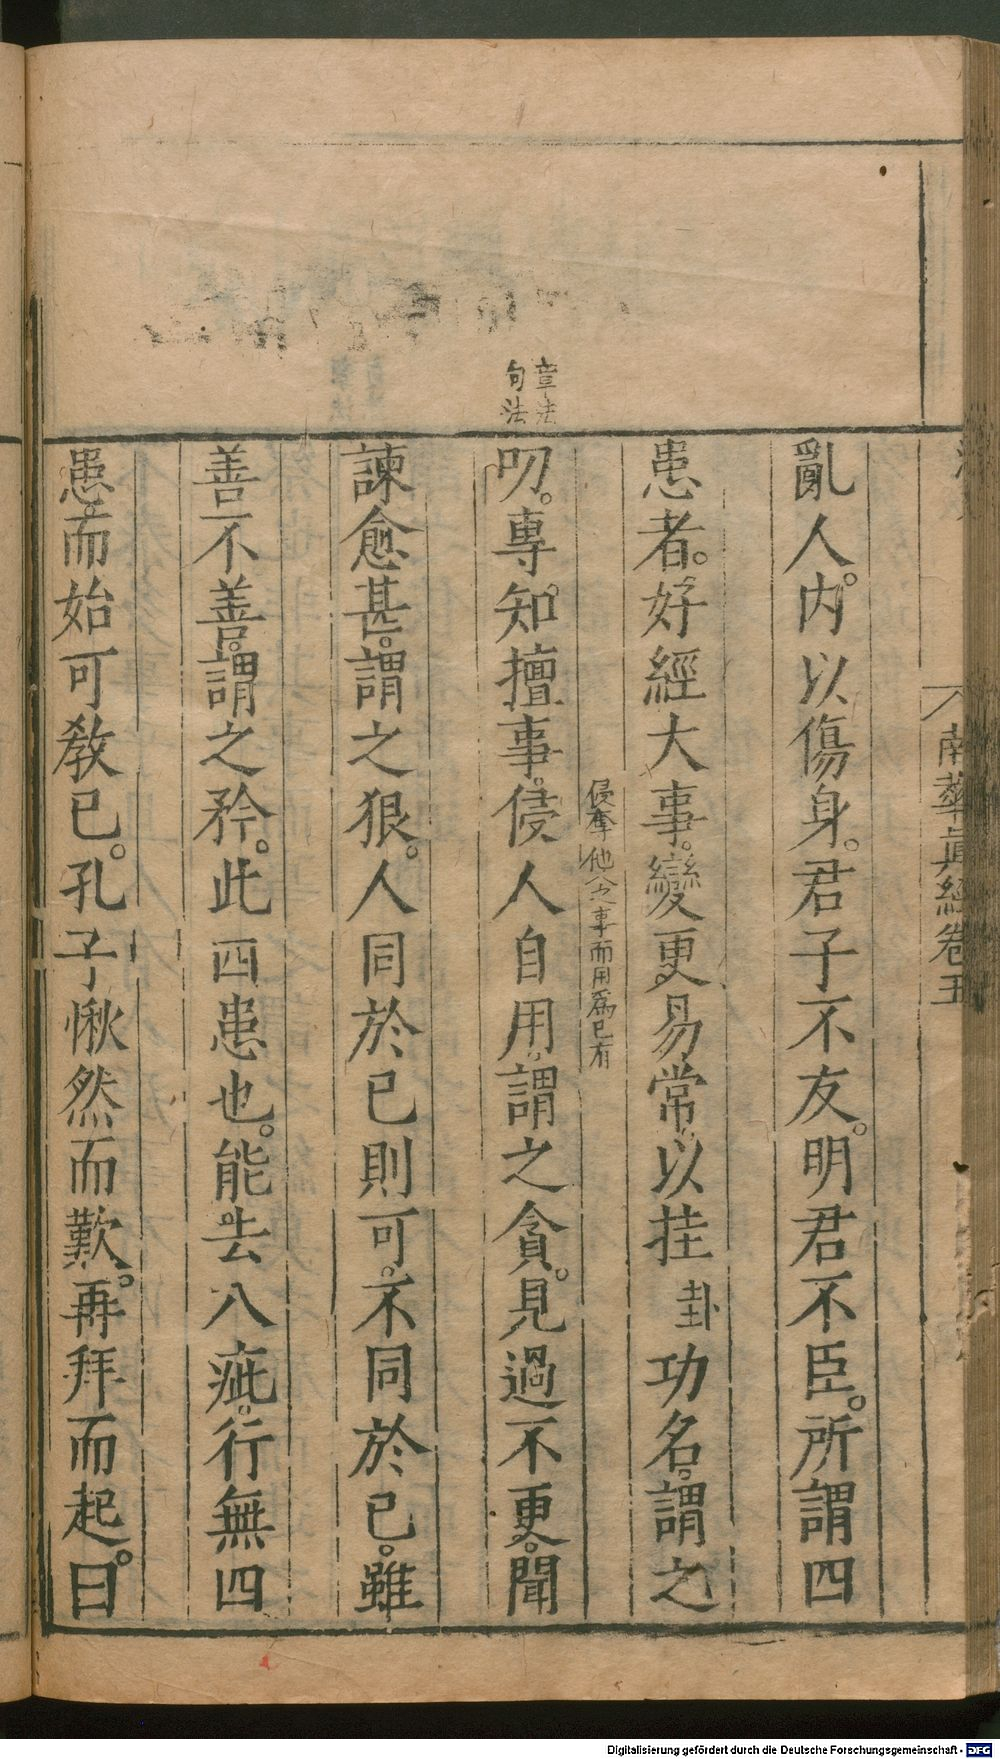 南華眞經卷五
亂人。内以傷身。君子不友。明君不臣。所謂四
患者。好經大事。變更易常以挂卦功名。謂之
侵奪他人之事而用爲已有
章法
句法
叨。專知擅事。侵人自用。謂之貪。見過不更。聞
諫愈甚。謂之狠。人同於已則可。不同於已。雖
善不善。謂之矜。此四患也。能去八疵。行無四
患。而始可敎已。孔子愀然而歎。再拜而起。曰
Digitalisierung gefördert durch die Deutsche Forschungsgemeinschaft - DFG